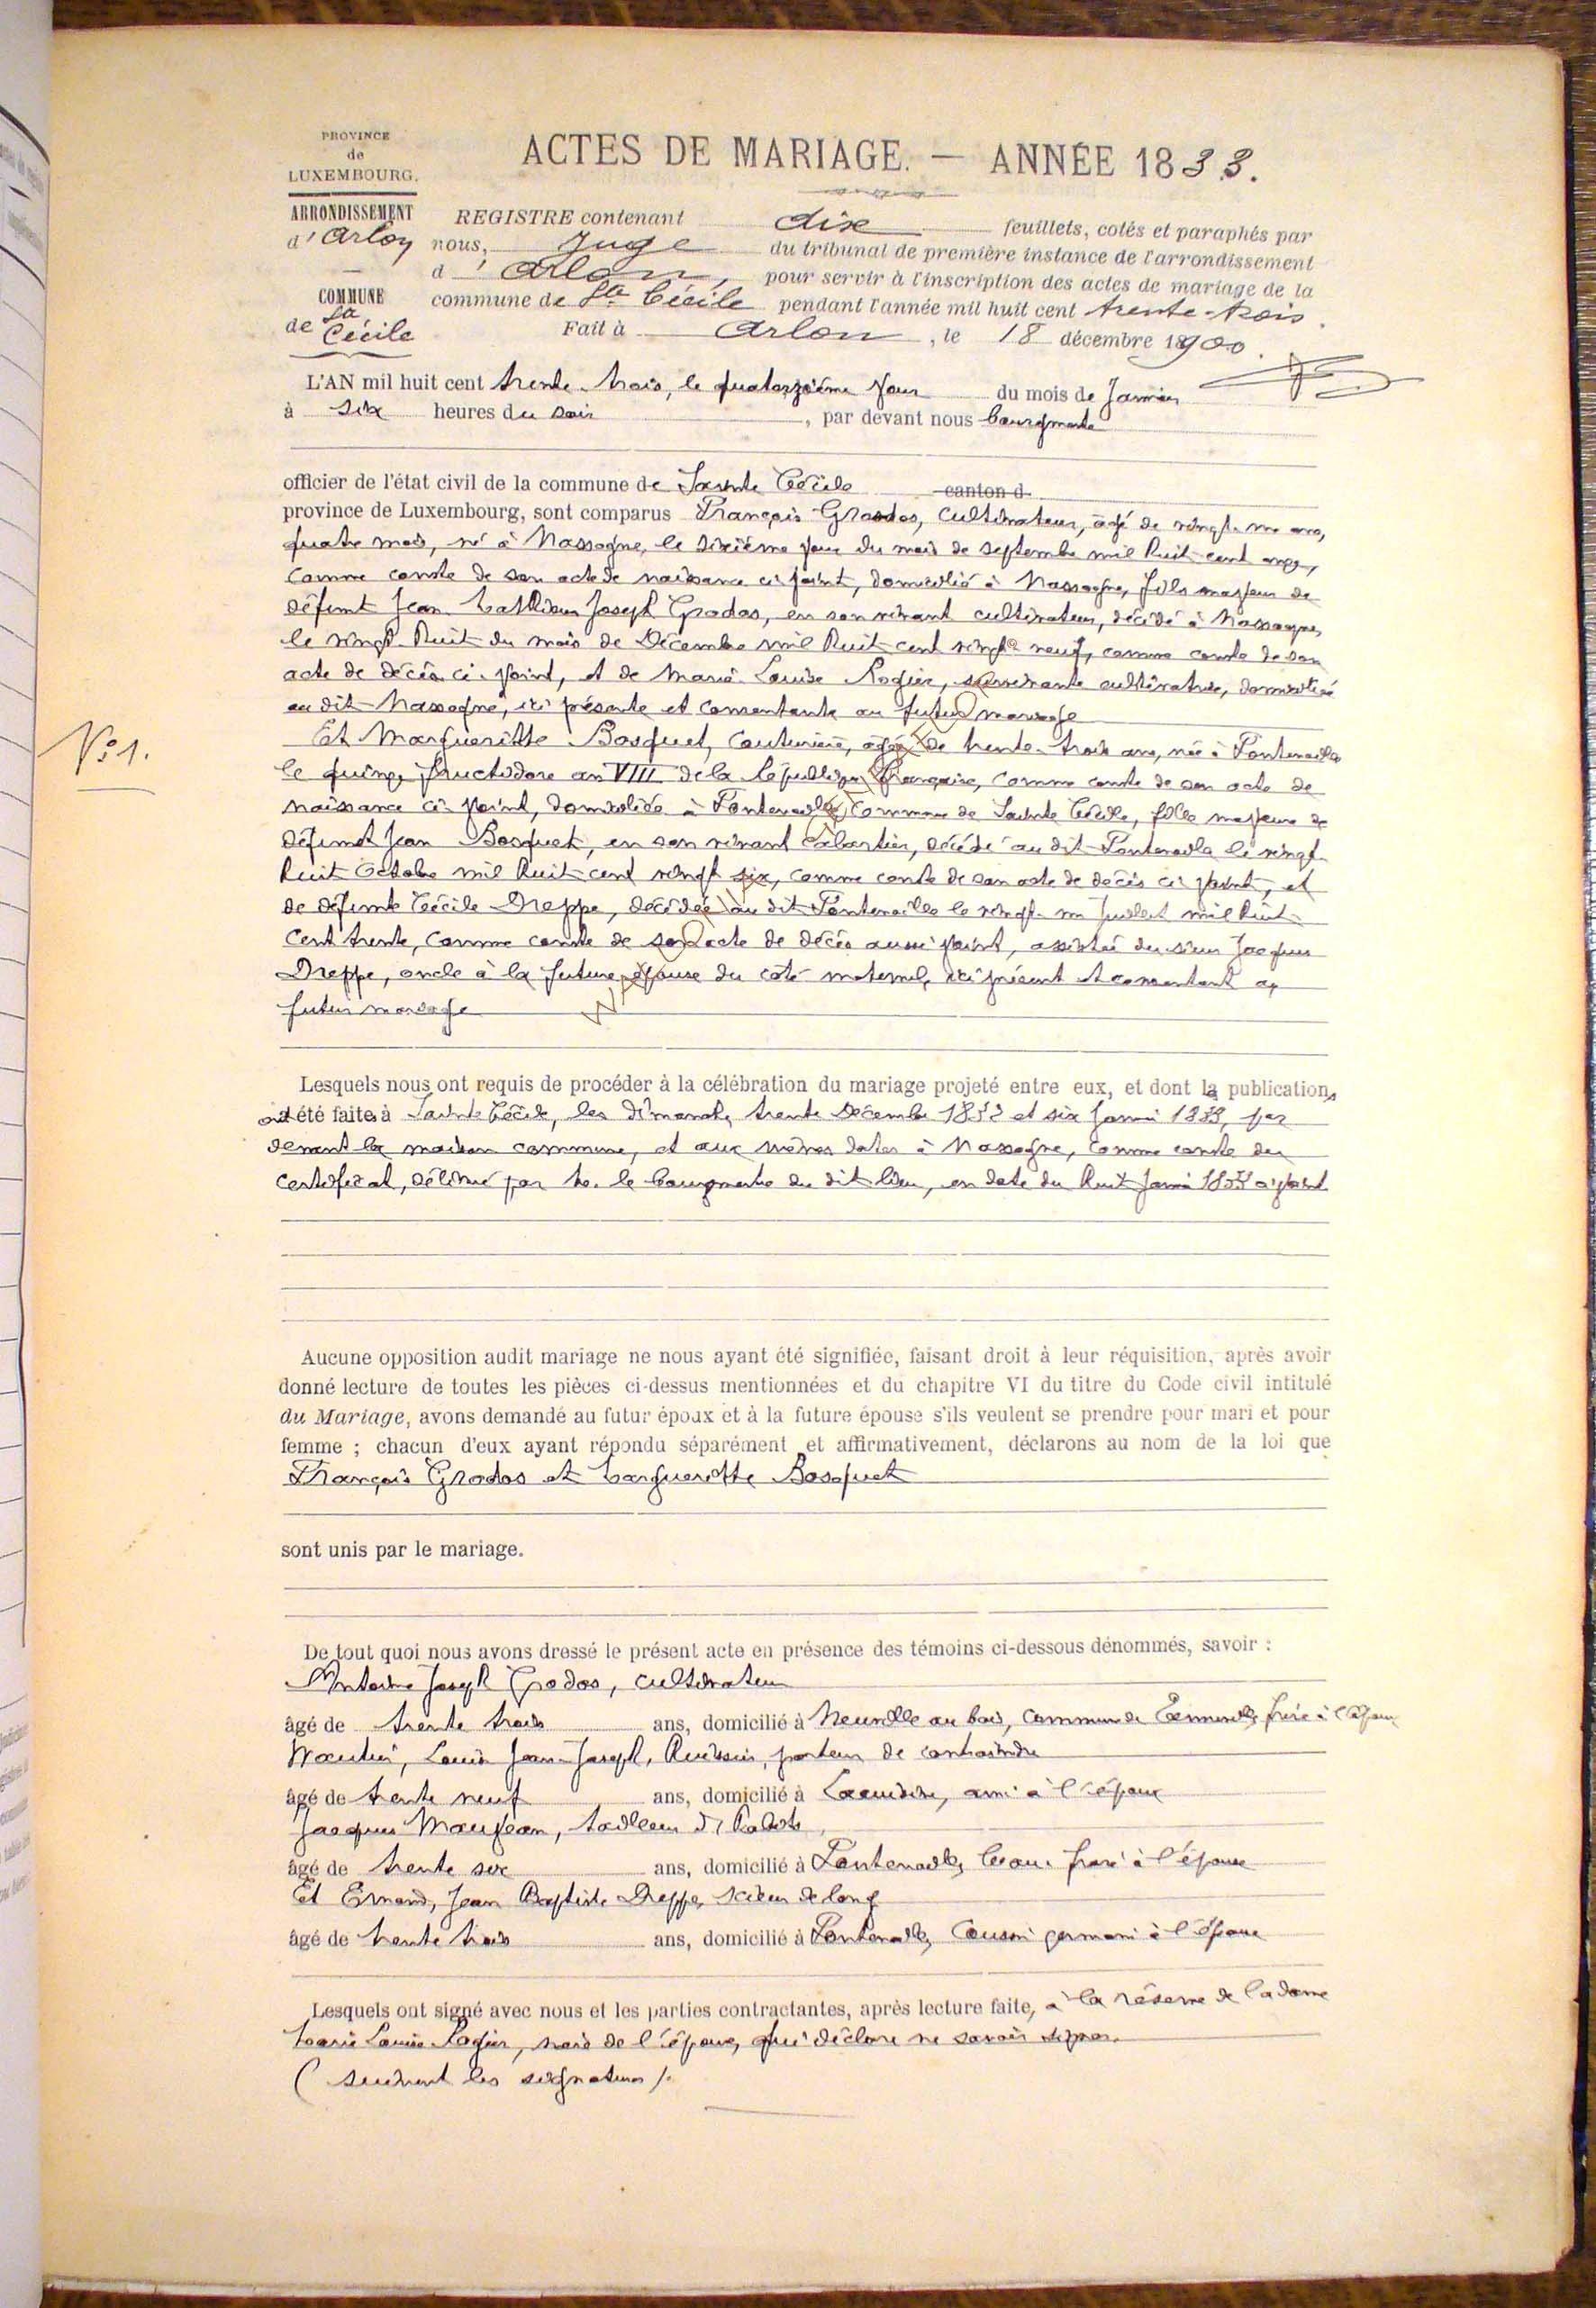 PROVINCE
de
LUXEMBOURG.
ACTES DE MARIAGE. — ANNÉE 1833.
ARRONDISSEMENT
d'Arlon
COMMUNE
de Ste Cécile
REGISTRE contenant dix feuillets, cotés et paraphés par
nous, Juge du tribunal de première instance de l'arrondissement
d'Arlon, pour servir à l'inscription des actes de mariage de la
commune de Ste Cécile pendant l'année mil huit cent trente-trois.
Fait à Arlon, le 18 décembre 1900.
L'AN mil huit cent trente-trois, le quatorzième jour du mois de Janvier
à six heures du soir, par devant nous bourgmestre
officier de l'état civil de la commune de Sainte Cécile canton d
province de Luxembourg, sont comparus François Grodos, cultivateur, âgé de vingt-un ans,
quatre mois, né à Nassogne, le sixième jour du mois de septembre mil huit cent onze,
comme conste de son acte de naissance ci-joint, domicilié à Nassogne, fils majeur de
défunt Jean Mathieu Joseph Grodos, en son vivant cultivateur, décédé à Nassogne,
le vingt-huit du mois de Décembre mil huit cent vingt neuf, comme conste de son
acte de décès ci-joint, et de Marie Louise Rogier, survivante cultivatrice, domiciliée
au dit Nassogne, ici présente et consentante au futur mariage
N° 1.
Et Margueritte Bosquet, couturière, âgée de trente-trois ans, née à Fontenoille
le quinze fructidore an VIII de la République française, comme conste de son acte de
naissance ci-joint, domiciliée à Fontenoille, commune de Sainte Cécile, fille majeure de
défunt Jean Bosquet, en son vivant cabartier, décédé au dit Fontenoille le vingt-
huit Octobre mil huit cent vingt six, comme conste de son acte de décès ci-joint, et
de défunte Cécile Dreppe, décédée au dit Fontenoille le vingt-un Juillet mil huit
cent trente, comme conste de son acte de décès aussi joint, assistée du sieur Jacques
Dreppe, oncle à la future épouse du côté maternel, ici présent et consentant au
futur mariage
Lesquels nous ont requis de procéder à la célébration du mariage projeté entre eux, et dont la publications
ont été faites à Sainte Cécile, les dimanche trente Décembre 1832 et six Janvier 1833, par
devant la maison commune, et aux mêmes dates à Nassogne, comme conste du
certificat, délivré par M. le bourgmestre du dit lieu, en date du huit Janvier 1833 ci-joint
Aucune opposition audit mariage ne nous ayant été signifiée, faisant droit à leur réquisition, après avoir
donné lecture de toutes les pièces ci-dessus mentionnées et du chapitre VI du titre du Code civil intitulé
du Mariage, avons demandé au futur époux et à la future épouse s'ils veulent se prendre pour mari et pour
femme ; chacun d'eux ayant répondu séparément et affirmativement, déclarons au nom de la loi que
François Grodos et Margueritte Bosquet
sont unis par le mariage.
De tout quoi nous avons dressé le présent acte en présence des témoins ci-dessous dénommés, savoir :
Antoine Joseph Grodos, cultivateur
âgé de trente trois ans, domicilié à Neuville au bois, commune de frère à l'époux
Louis Jean-Joseph, huissier, porteur de contrainte
âgé de trente neuf ans, domicilié à ami à l'époux
Jacques Maujean, tailleur d'habits,
âgé de trente six ans, domicilié à Fontenoille, beau-frère à l'épouse
Et Jean Baptiste Dreppe, scieur de long
âgé de trente trois ans, domicilié à Fontenoille, cousin germain à l'épouse
Lesquels ont signé avec nous et les parties contractantes, après lecture faite, à la réserve de la dame
Marie Louise Rogier, mère de l'époux, qui déclare ne savoir signer.
(suivent les signatures).